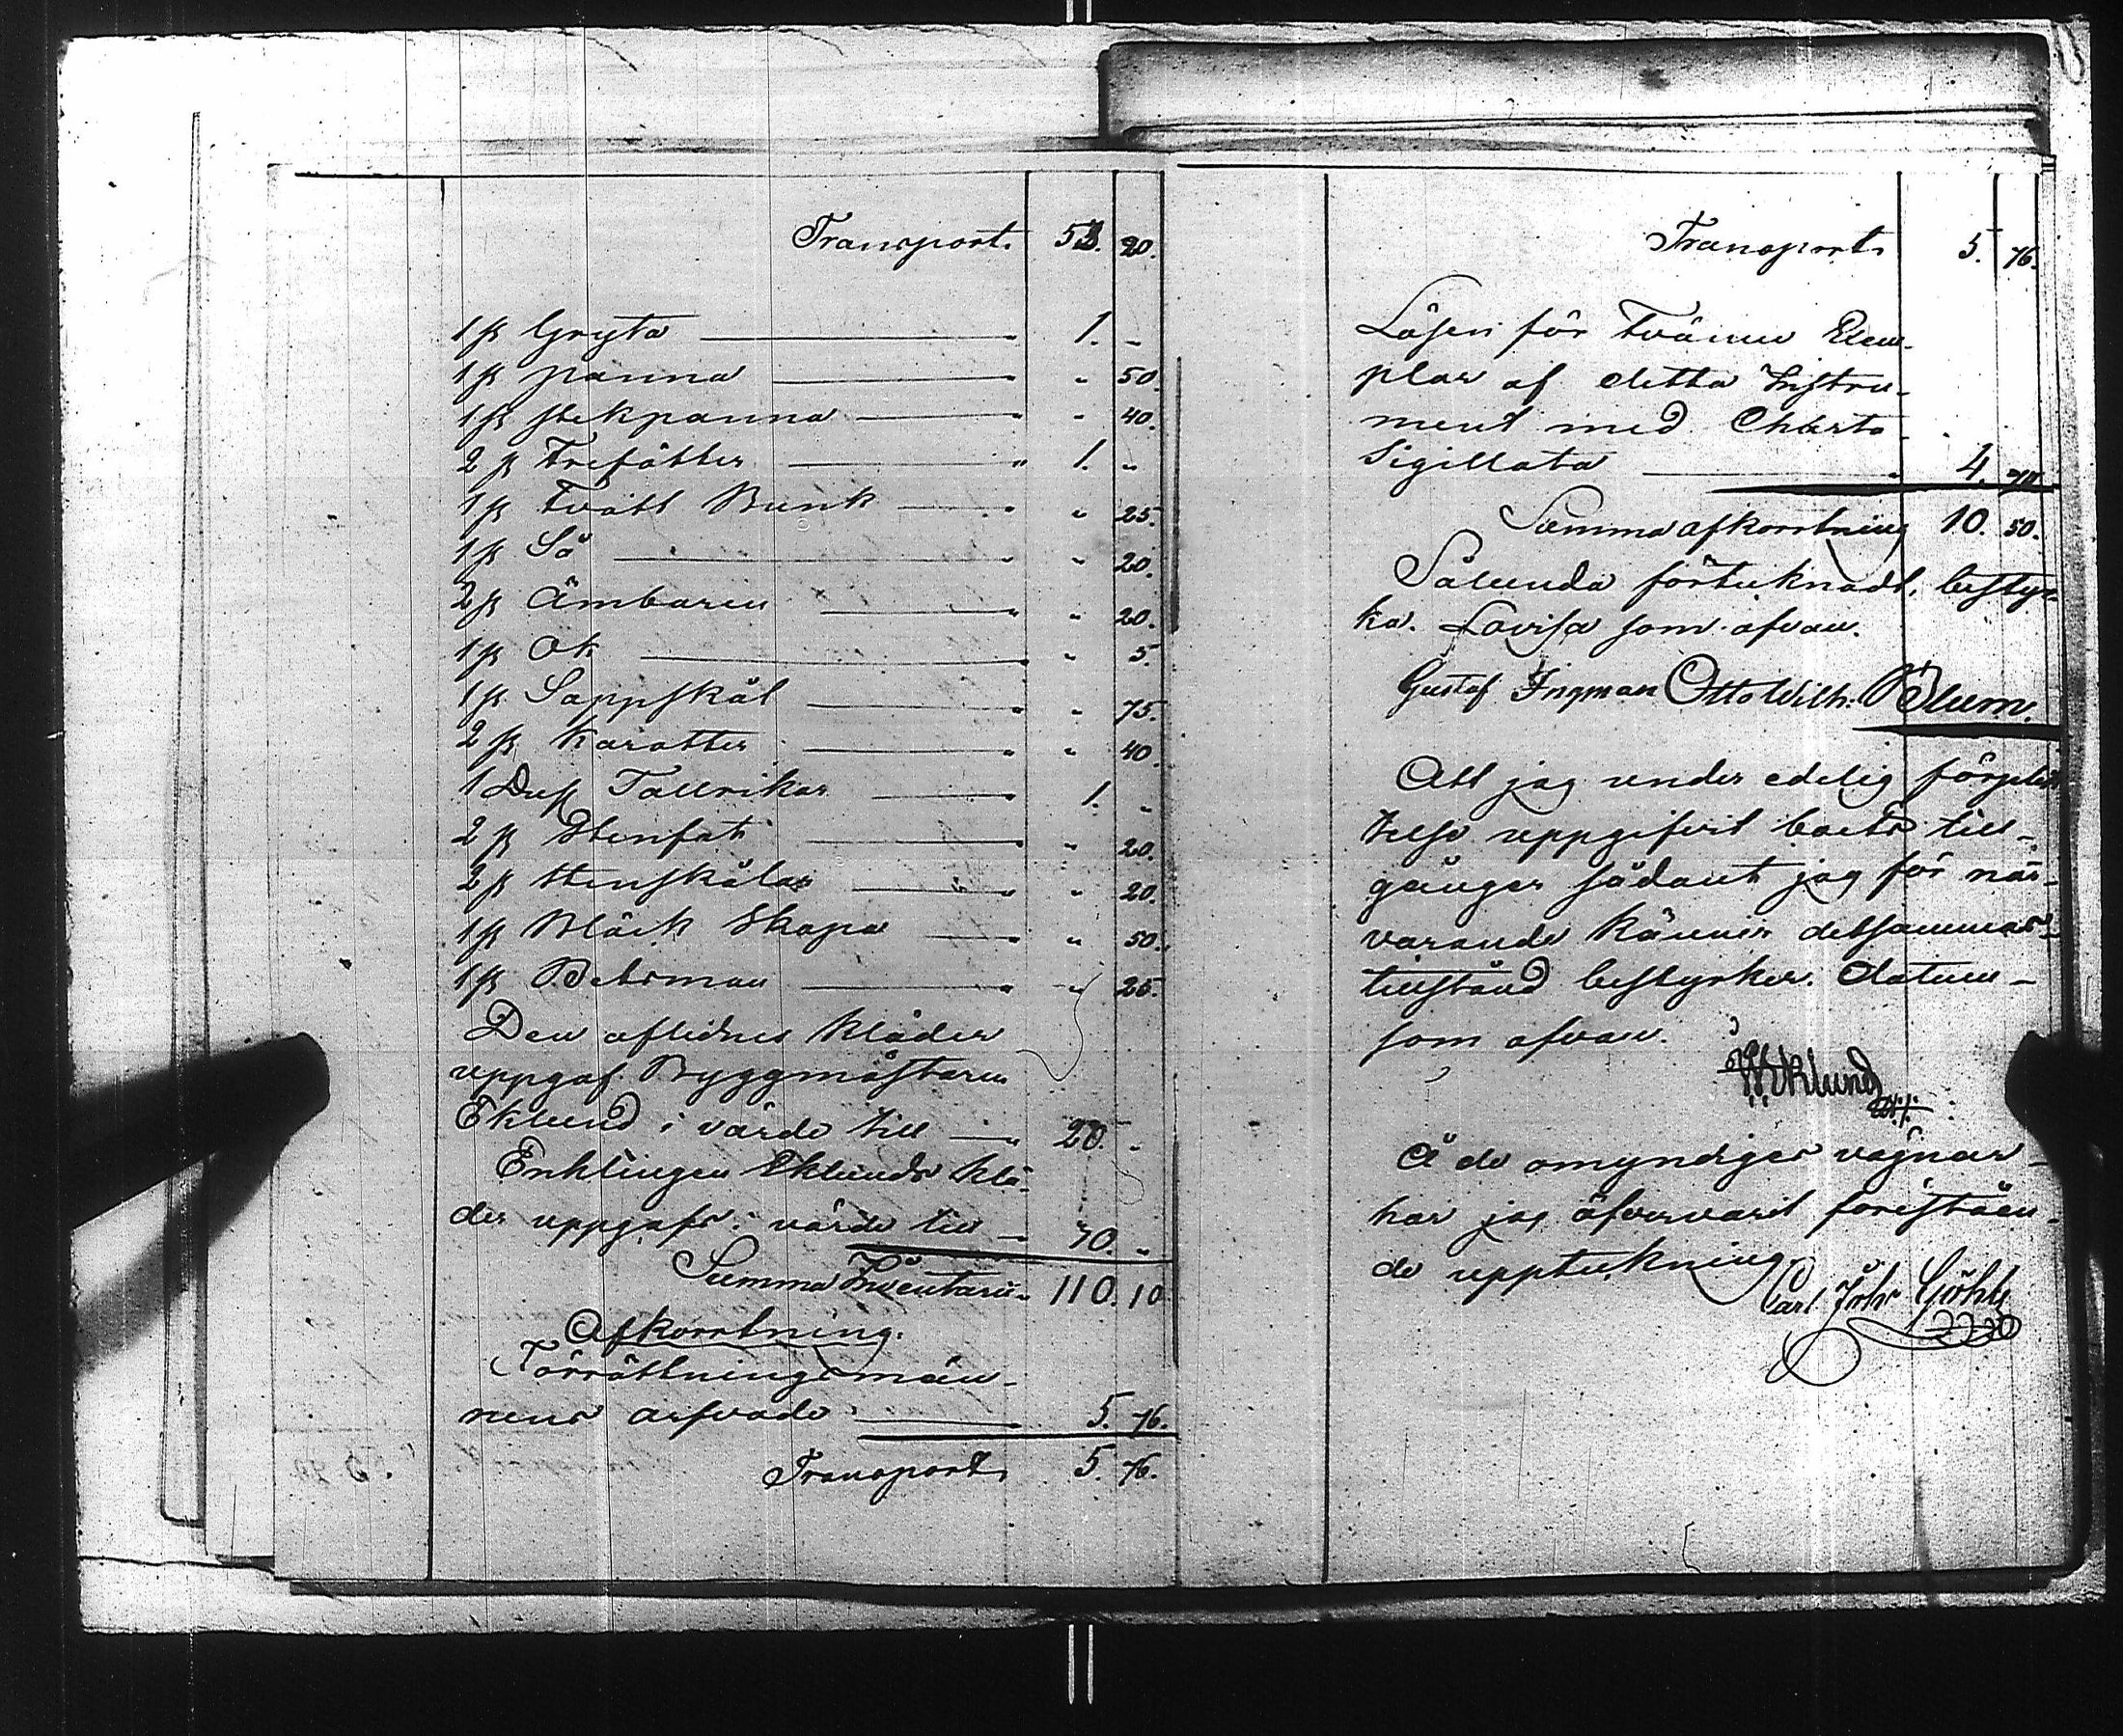 Transport. 53. 20.
1 st Gryta 1. "
1 st panna " 50.
1 st stekpanna " 40.
2 st Trefötter 1. "
1 st Tvätt Bunk " 25.
1 st Så " 20.
2 st Ämbaren " 20.
1 st Ok " 5.
1 st Soppskål " 75.
2 st Karotter " 40.
1 Dus Tallrikar 1. "
2 st Stenfat " 20.
2 st Stenskålar " 20.
1 st Bläck Skopa " 50.
1 st Betsman " 25.
Den aflidnes kläder
uppgaf Byggmästaren
Eklund i värde till 20. "
Enklingen Eklunds klä-
der uppgafs i värde till 30. "
Summa Inventarii 110. 10
Afkorrtning.
Förrättningsmän-
nens arfvode 5. 76.
Transport 5. 76.
Transport 5. 76.
Lösen för Tvänne Exem-
plar af detta Instru-
ment med Charta
Sigillata 4.
Summa afkorrtning 10. 50.
Sålunda förtecknadt, bestyr-
ka. Lovisa som ofvan.
Gustaf Ingman Otto Wilh: Blum.
Att jag under edelig förplik
telse uppgifvit boets till-
gånger sådant jag för när-
varande känner detsammas
tillstånd bestyrker. Datum
som ofvan.
Eklund
Å de omyndiges vägnar
har jag öfvervarit föreståen-
de uppteckning
Carl Joh: